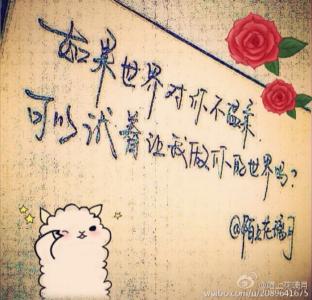 如果世界对你不温柔.
可以试着让我做你的世界吗?
@陌上花满月
weibo.com/u/2089641675